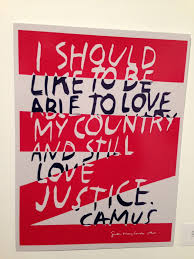 I SHOULD
LIKE TO BE
ABLE TO LOVE
MY COUNTRY
AND STILL
LOVE
JUSTICE.
CAMUS